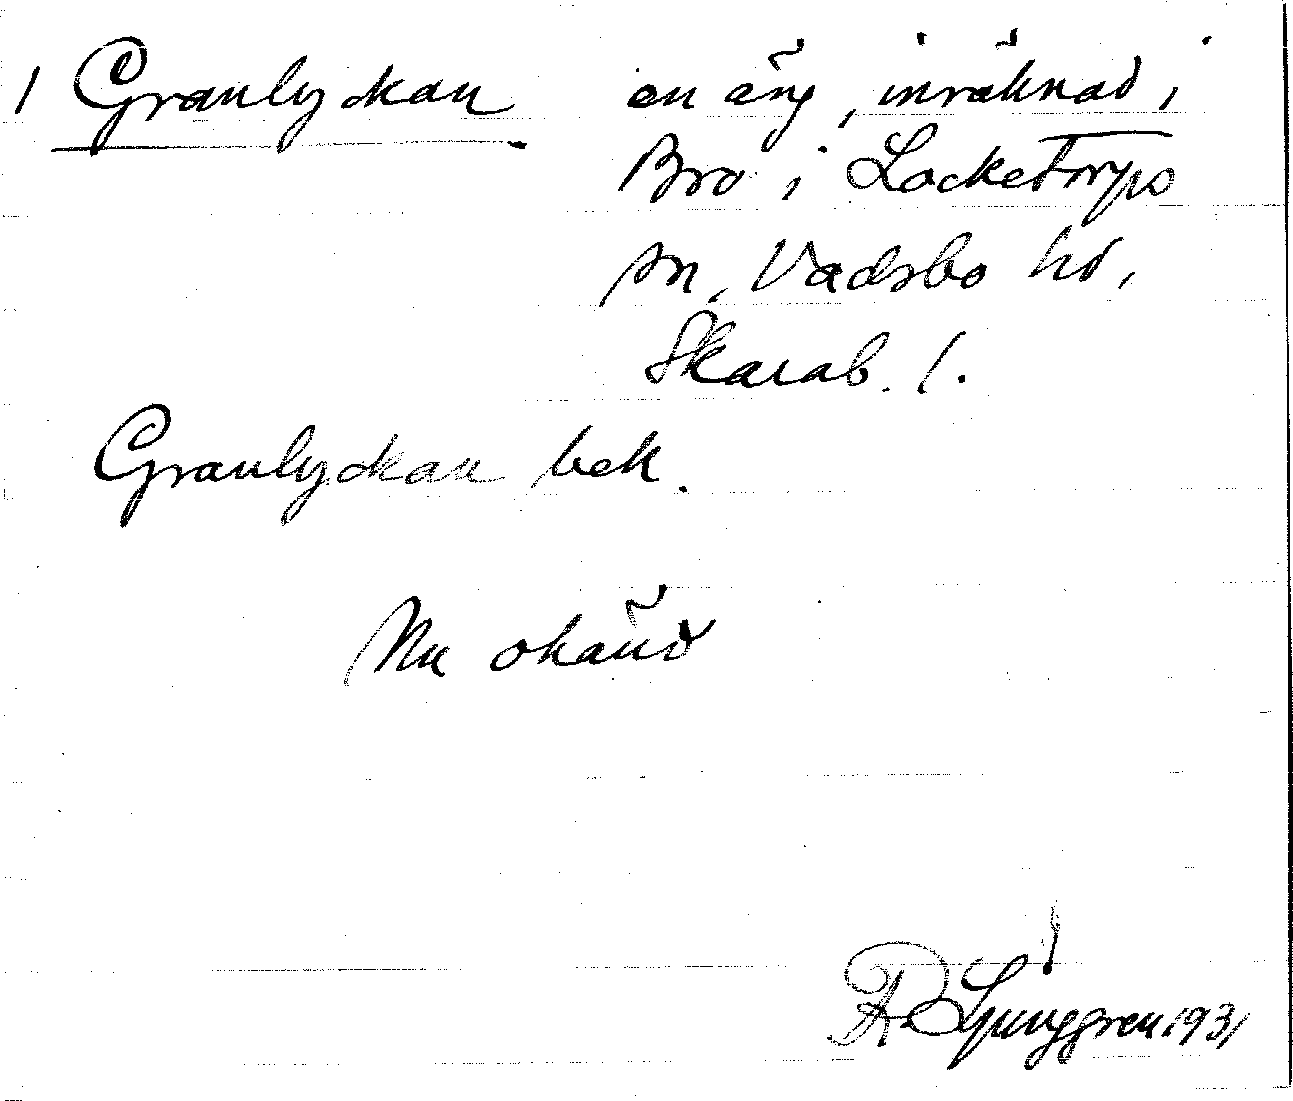 1 Granlyckan en äng, inräknad i
Bro i Locketorps
sn, Vadsbo hd,
Skarab. l.
Granlyckan bek.
Nu okänd
R Ljunggren 1931